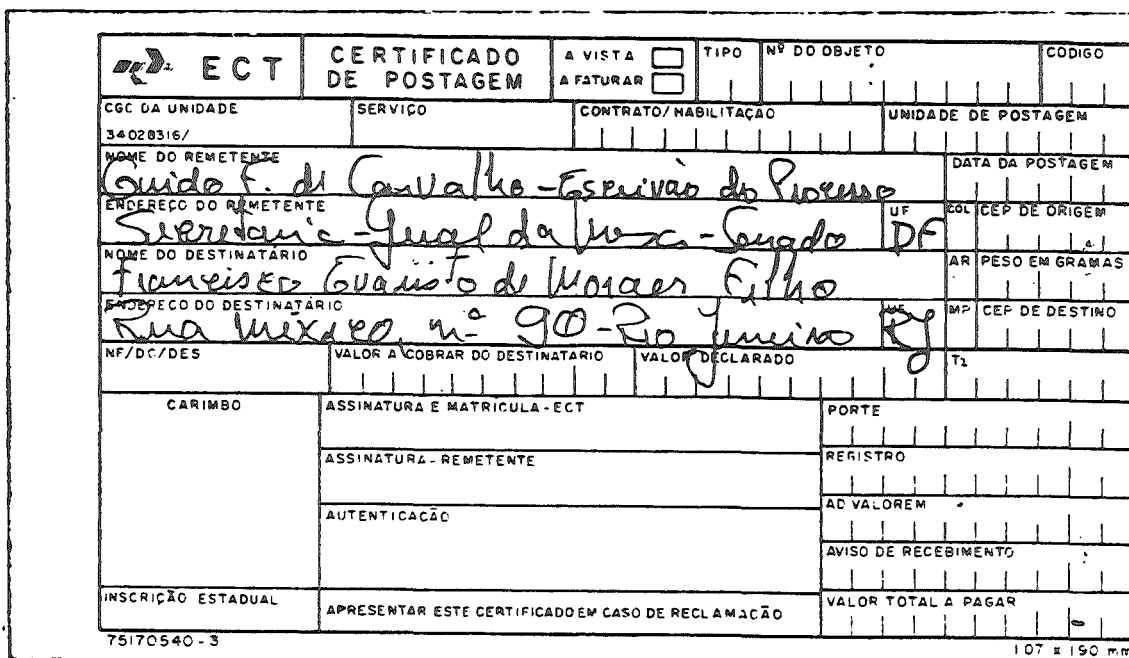 ECT
CERTIFICADO DE POSTAGEM
A VISTA
A FATURAR
TIPO
Nº DO OBJETO
CODIGO
CGC DA UNIDADE
34028316/
SERVIÇO
CONTRATO/HABILITAÇÃO
UNIDADE DE POSTAGEM
NOME DO REMETENTE
Guido F. de Carvalho - Escrivão do Processo
DATA DA POSTAGEM
ENDEREÇO DO REMETENTE
Secretaria-Geral da Mesa - Senado
UF
DF
COL
CEP DE ORIGEM
NOME DO DESTINATÁRIO
Francisco Evaristo de Moraes Filho
AR
PESO EM GRAMAS
ENDEREÇO DO DESTINATÁRIO
Rua México, nº 90 - Rio Janeiro
UF
RJ
MP
CEP DE DESTINO
NF/DC/DES
VALOR A COBRAR DO DESTINATARIO
VALOR DECLARADO
T2
CARIMBO
ASSINATURA E MATRICULA - ECT
PORTE
ASSINATURA - REMETENTE
REGISTRO
AUTENTICAÇÃO
AD VALOREM
AVISO DE RECEBIMENTO
INSCRIÇÃO ESTADUAL
APRESENTAR ESTE CERTIFICADO EM CASO DE RECLAMAÇÃO
VALOR TOTAL A PAGAR
75170540-3
107 x 190 mm